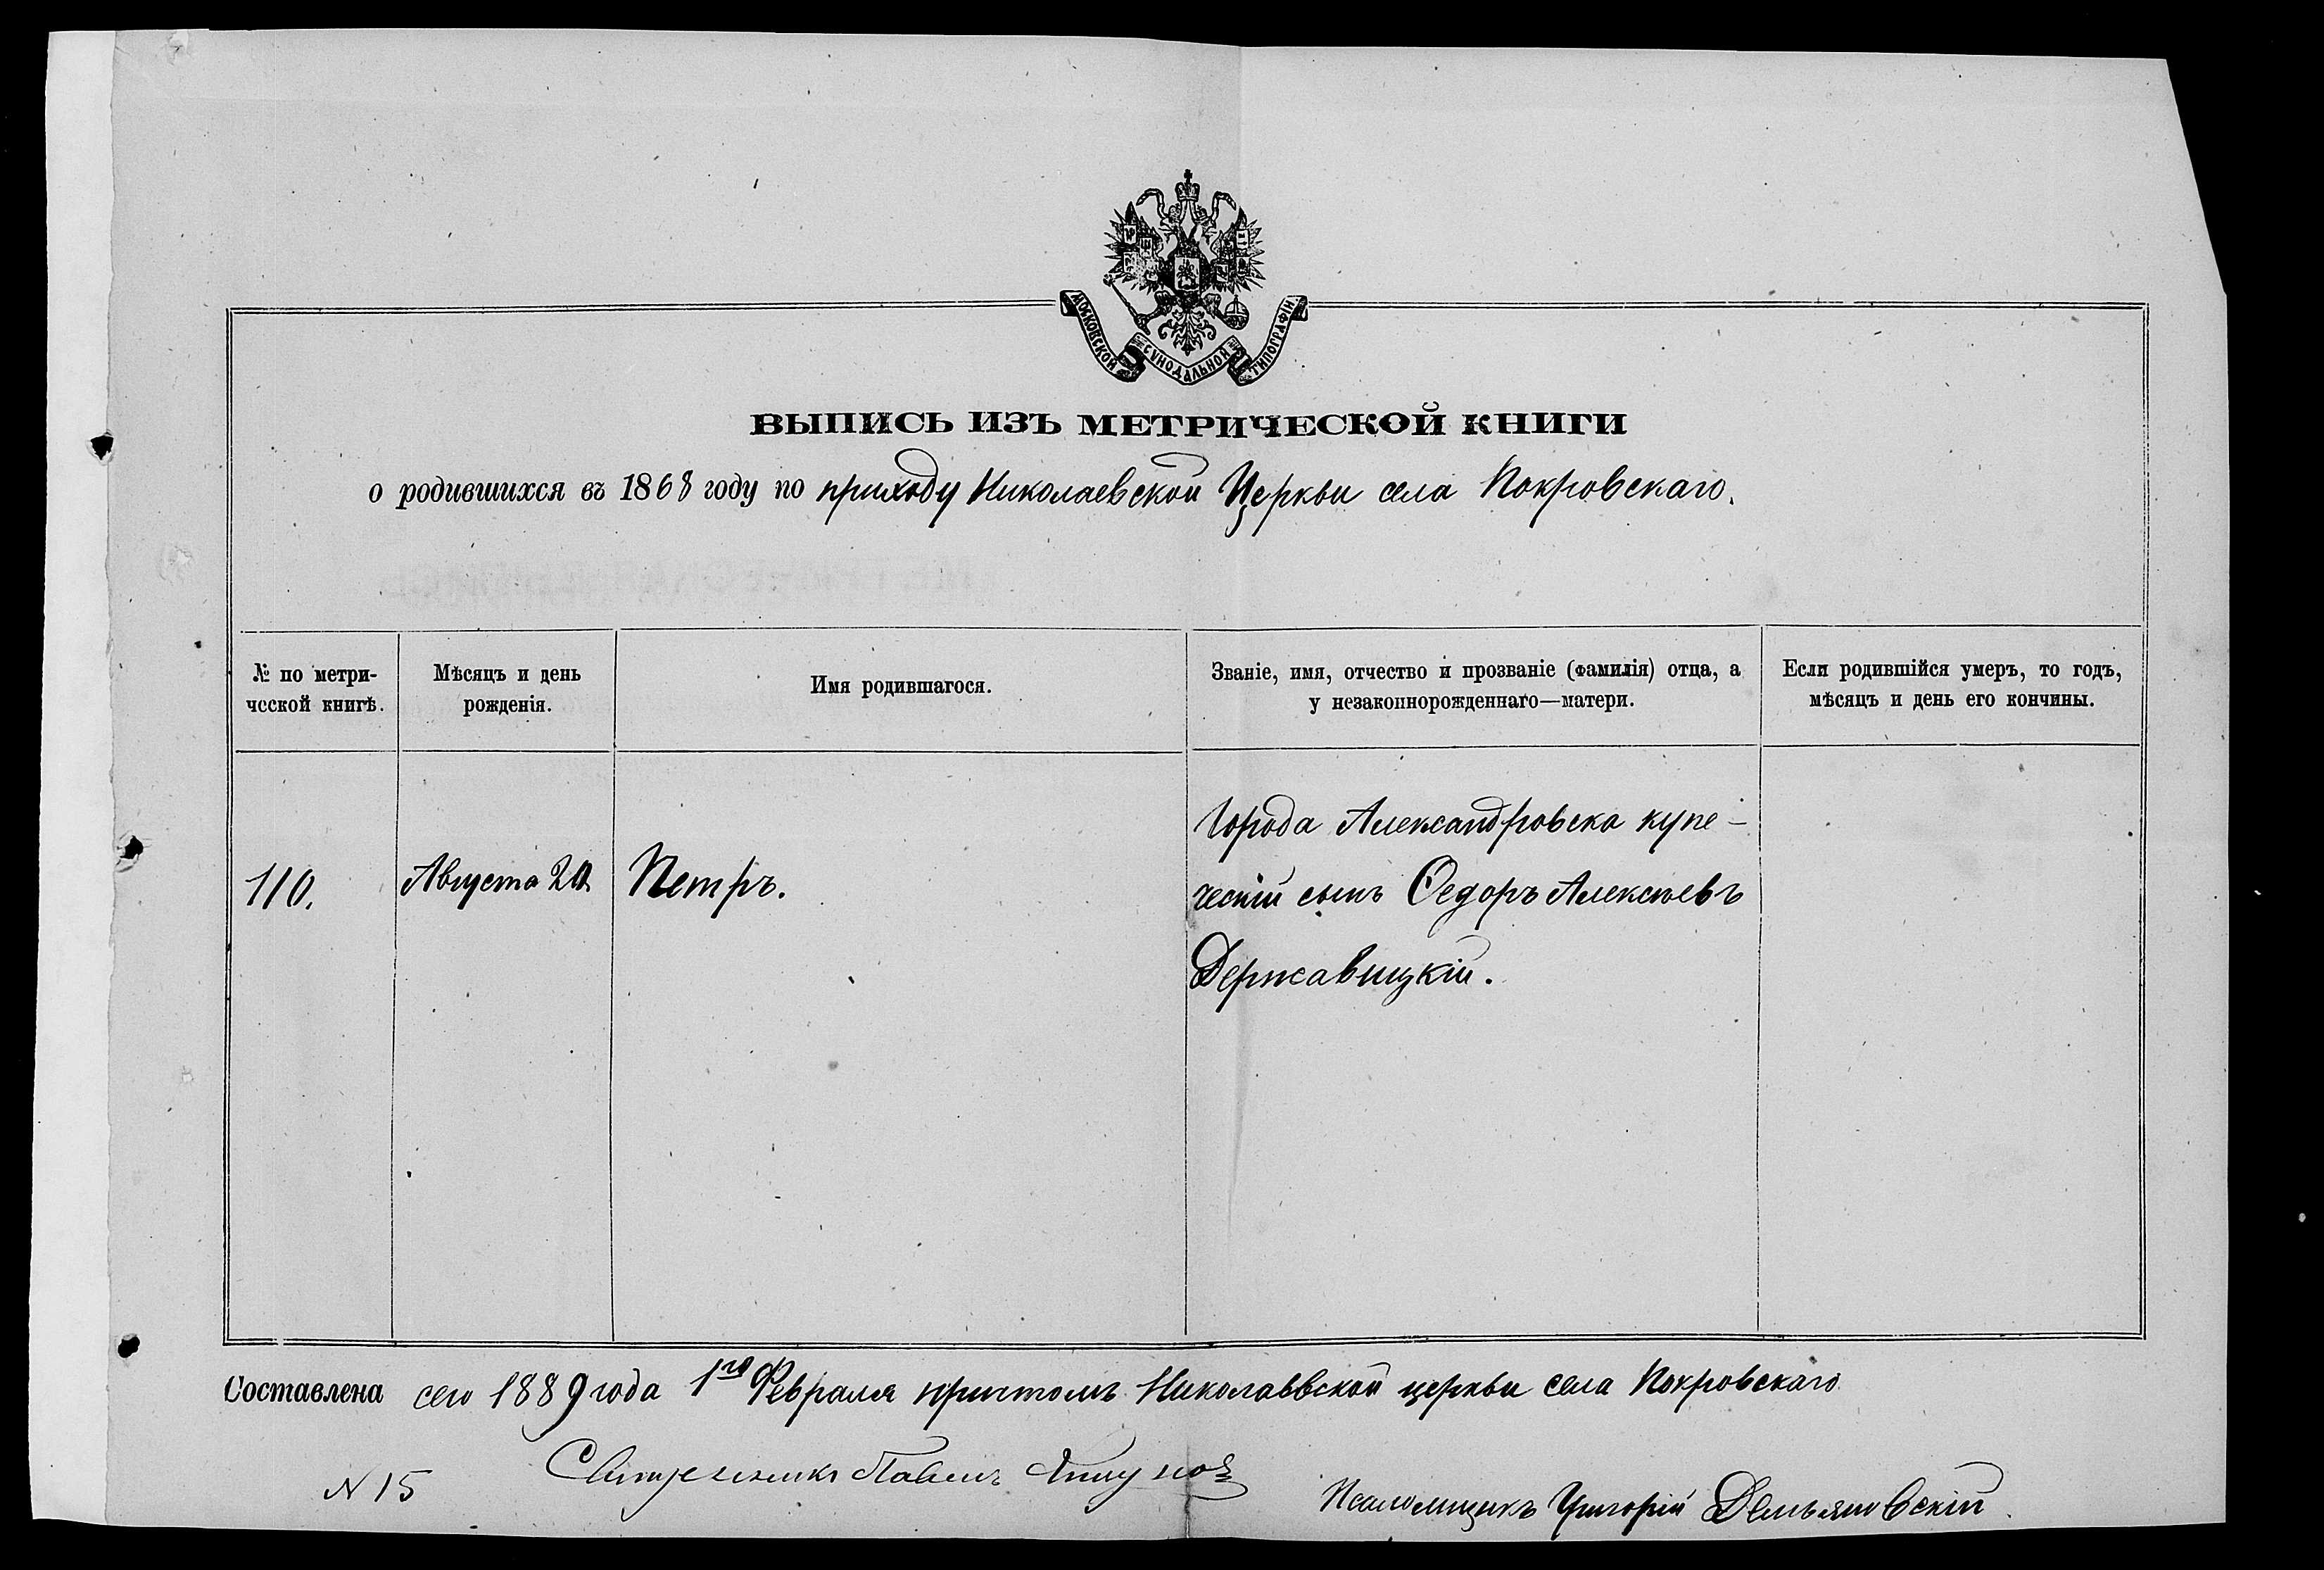 МОСКОВСКОЙ СУНОДАЛЬНОЙ ТИПОГРАФІИ
ВЫПИСЬ ИЗЪ МЕТРИЧЕСКОЙ КНИГИ
о родившихся въ 1868 году по приходу Николаевской Церкви села Покровскаго.
№ по метри-
ческой книгѣ.
Мѣсяцъ и день
рожденія.
Имя родившагося.
Званіе, имя, отчество и прозваніе (фамилія) отца, а
у незаконнорожденнаго—матери.
Если родившійся умеръ, то годъ,
мѣсяцъ и день его кончины.
110.
Августа 20
Петръ.
Города Александровска купе-
ческій сынъ Ѳедоръ Алексѣевъ
Державицкій.
Составлена сего 1889 года 1го Февраля причтомъ Николаевской церкви села Покровскаго
N 15
Священникъ Павелъ
Псаломщикъ Григорій Демьяновскій.